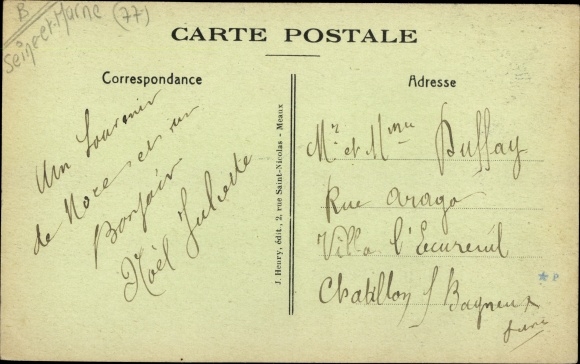 B
Seine et Marne (77)
CARTE POSTALE
Correspondance
Un Souvenir
de Noces et un
Bonjour
Noël Juliette
J. Henry, édit., 2, rue Saint-Nicolas - Meaux
Adresse
Mr et Mme Buffay
Rue arago
Villa l'Ecureuil
Chatillon s/ Bagneux
Seine